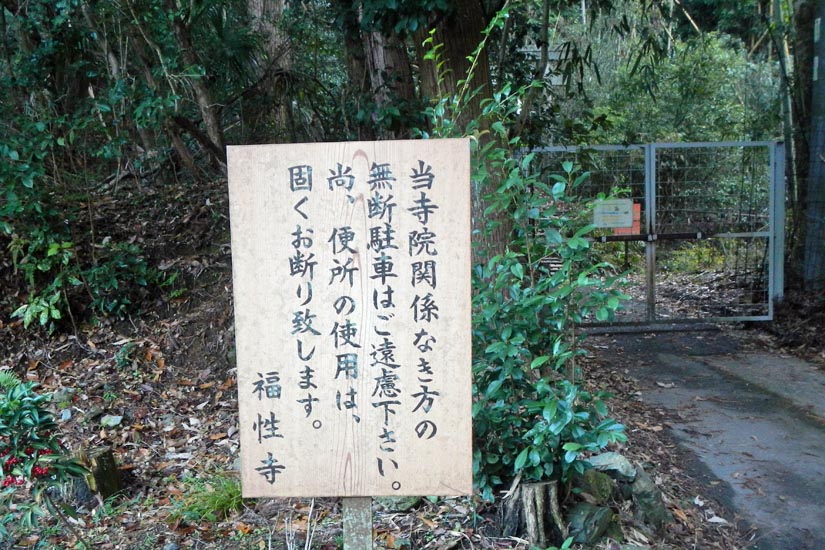 当寺院関係なき方の
無断駐車はご遠慮下さい。
尚、便所の使用は、
固くお断り致します。
福性寺